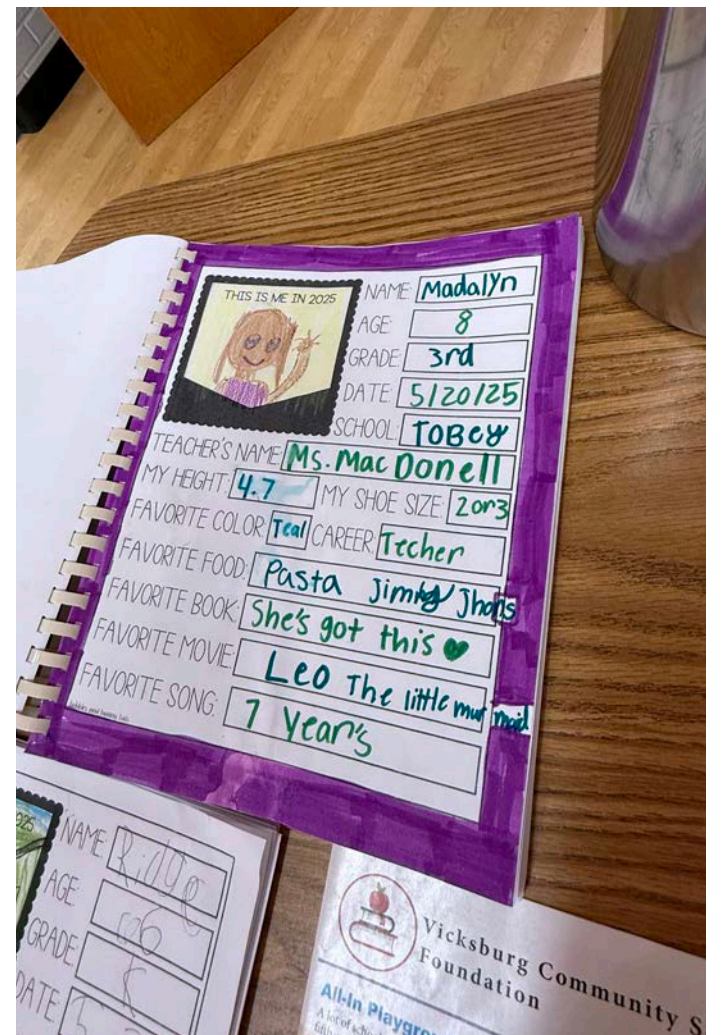 THIS IS ME IN 2025
NAME: Madalyn
AGE: 8
GRADE: 3rd
DATE: 5/20/25
SCHOOL: TOBEY
TEACHER'S NAME: Ms. Mac Donell
MY HEIGHT: 4.7 MY SHOE SIZE: 2 or 3
FAVORITE COLOR: Teal CAREER: Techer
FAVORITE FOOD: Pasta Jimmy Jhons
FAVORITE BOOK: She's got this
FAVORITE MOVIE: Leo The little mur maid
FAVORITE SONG: 7 Year's
2025
NAME: Ridge
AGE: 6
GRADE: K
DATE: 5
Vicksburg Community S
Foundation
All-In Playgro
A lot of scho